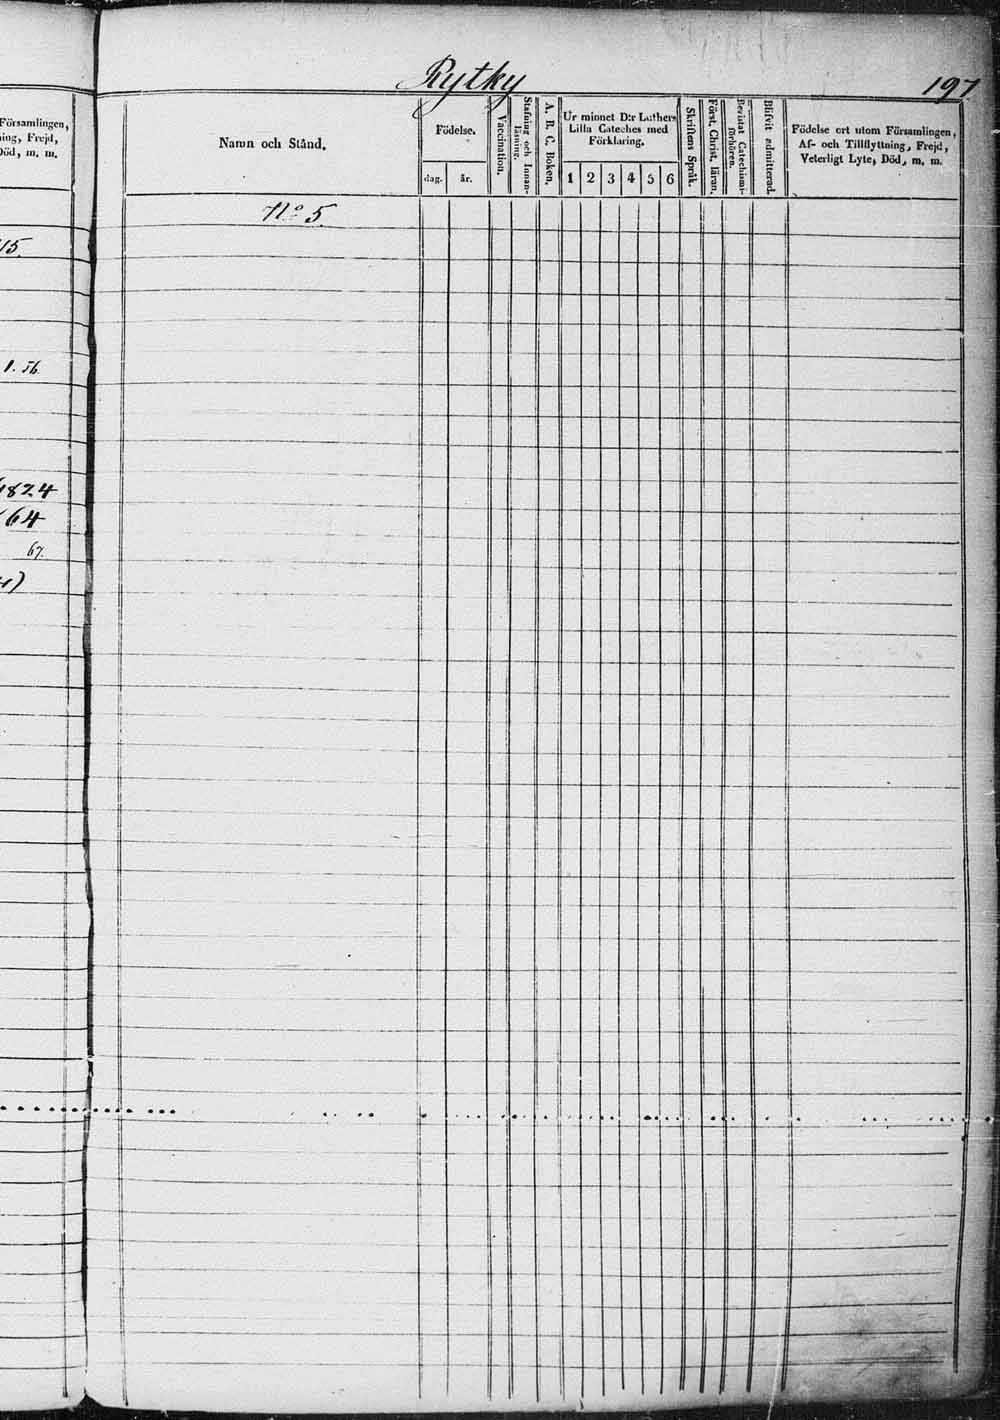 Rytky
197.
Församlingen,
ning, Frejd,
Död, m. m.
15.
1. 56.
1824
64
67.
Namn och Stånd.
Födelse.
dag.
år.
Vaccination.
Stafning och Innan-
läsning.
A. B. C. Boken.
Ur minnet D:r Luthers
Lilla Cateches med
Förklaring.
1 2 3 4 5 6
Skriftens Språk.
Först. Christ. läran.
Bevistat Catechismi-
förhören.
Blifvit admitterad.
Födelse ort utom Församlingen,
Af- och Tillflyttning, Frejd,
Veterligt Lyte, Död, m. m.
No 5.